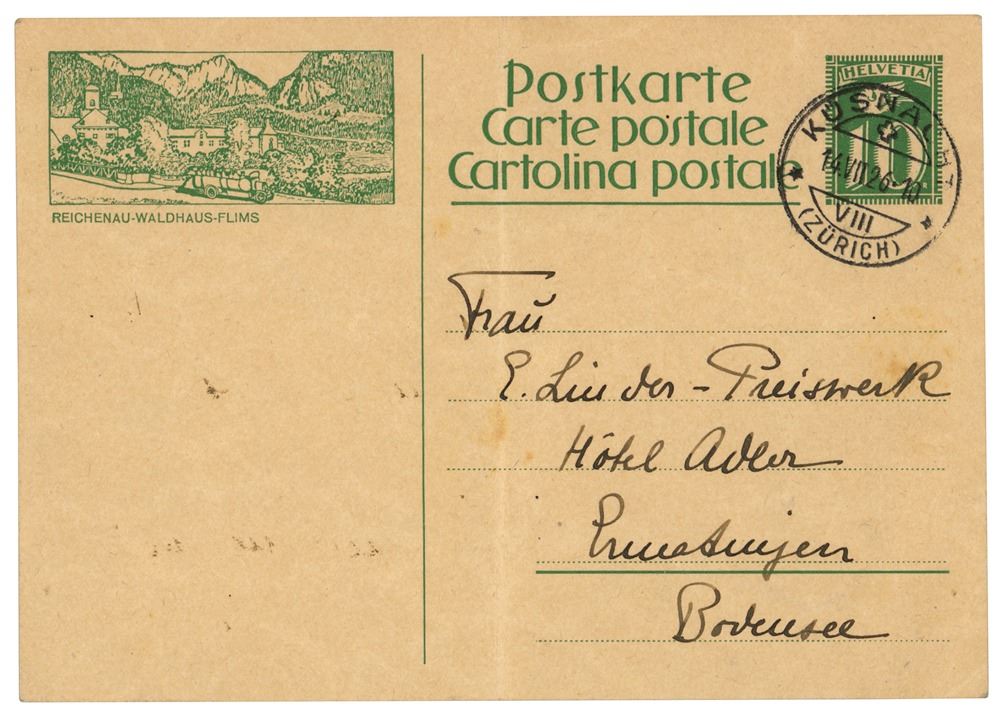 REICHENAU-WALDHAUS-FLIMS
Postkarte
Carte postale
Cartolina postale
HELVETIA
10
KÜSNACHT
14.VII.26-10
VIII
(ZÜRICH)
Frau
E. Linder-Preiswerk
Hôtel Adler
Ermatingen
Bodensee